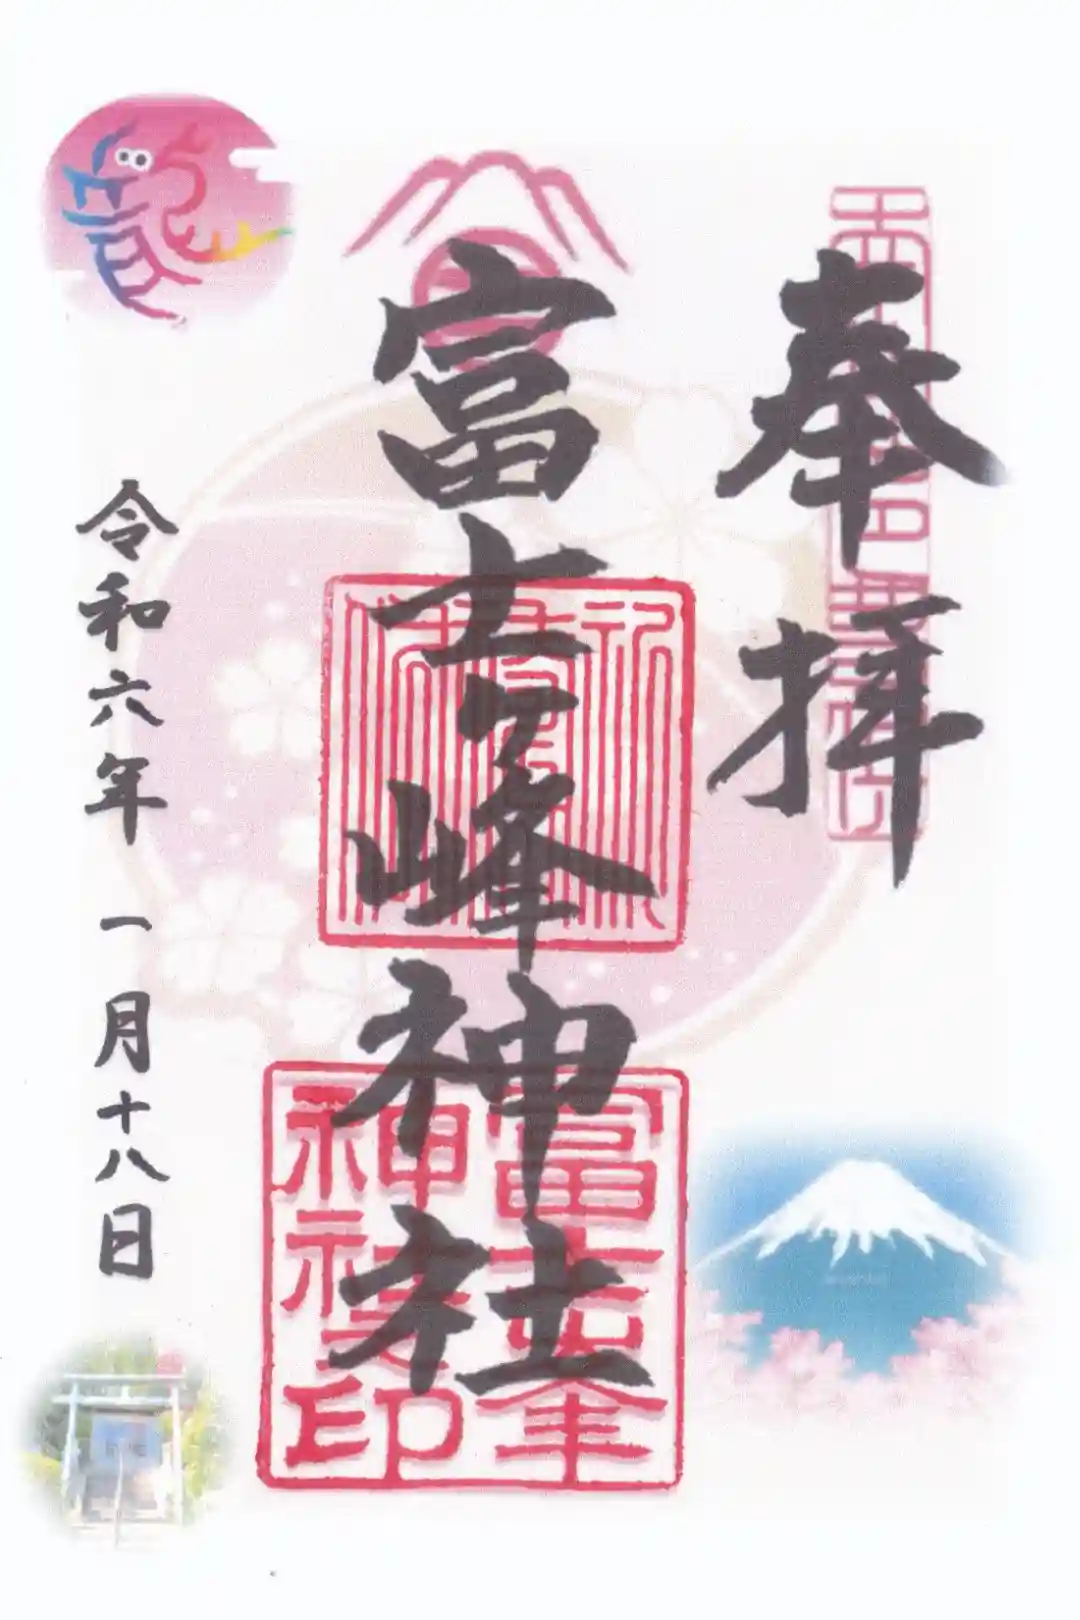 奉拝
富士ヶ峰神社
富士峯
神社印
令和六年 一月十八日
龍